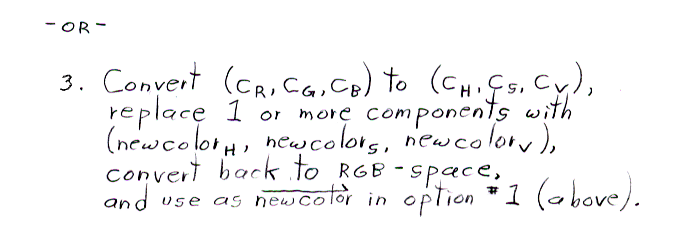 -OR-
3. Convert (C_R, C_G, C_B) to (C_H, C_S, C_V),
replace 1 or more components with
(newcolor_H, newcolor_S, newcolor_V),
convert back to RGB-space,
and use as newcolor in option #1 (above).